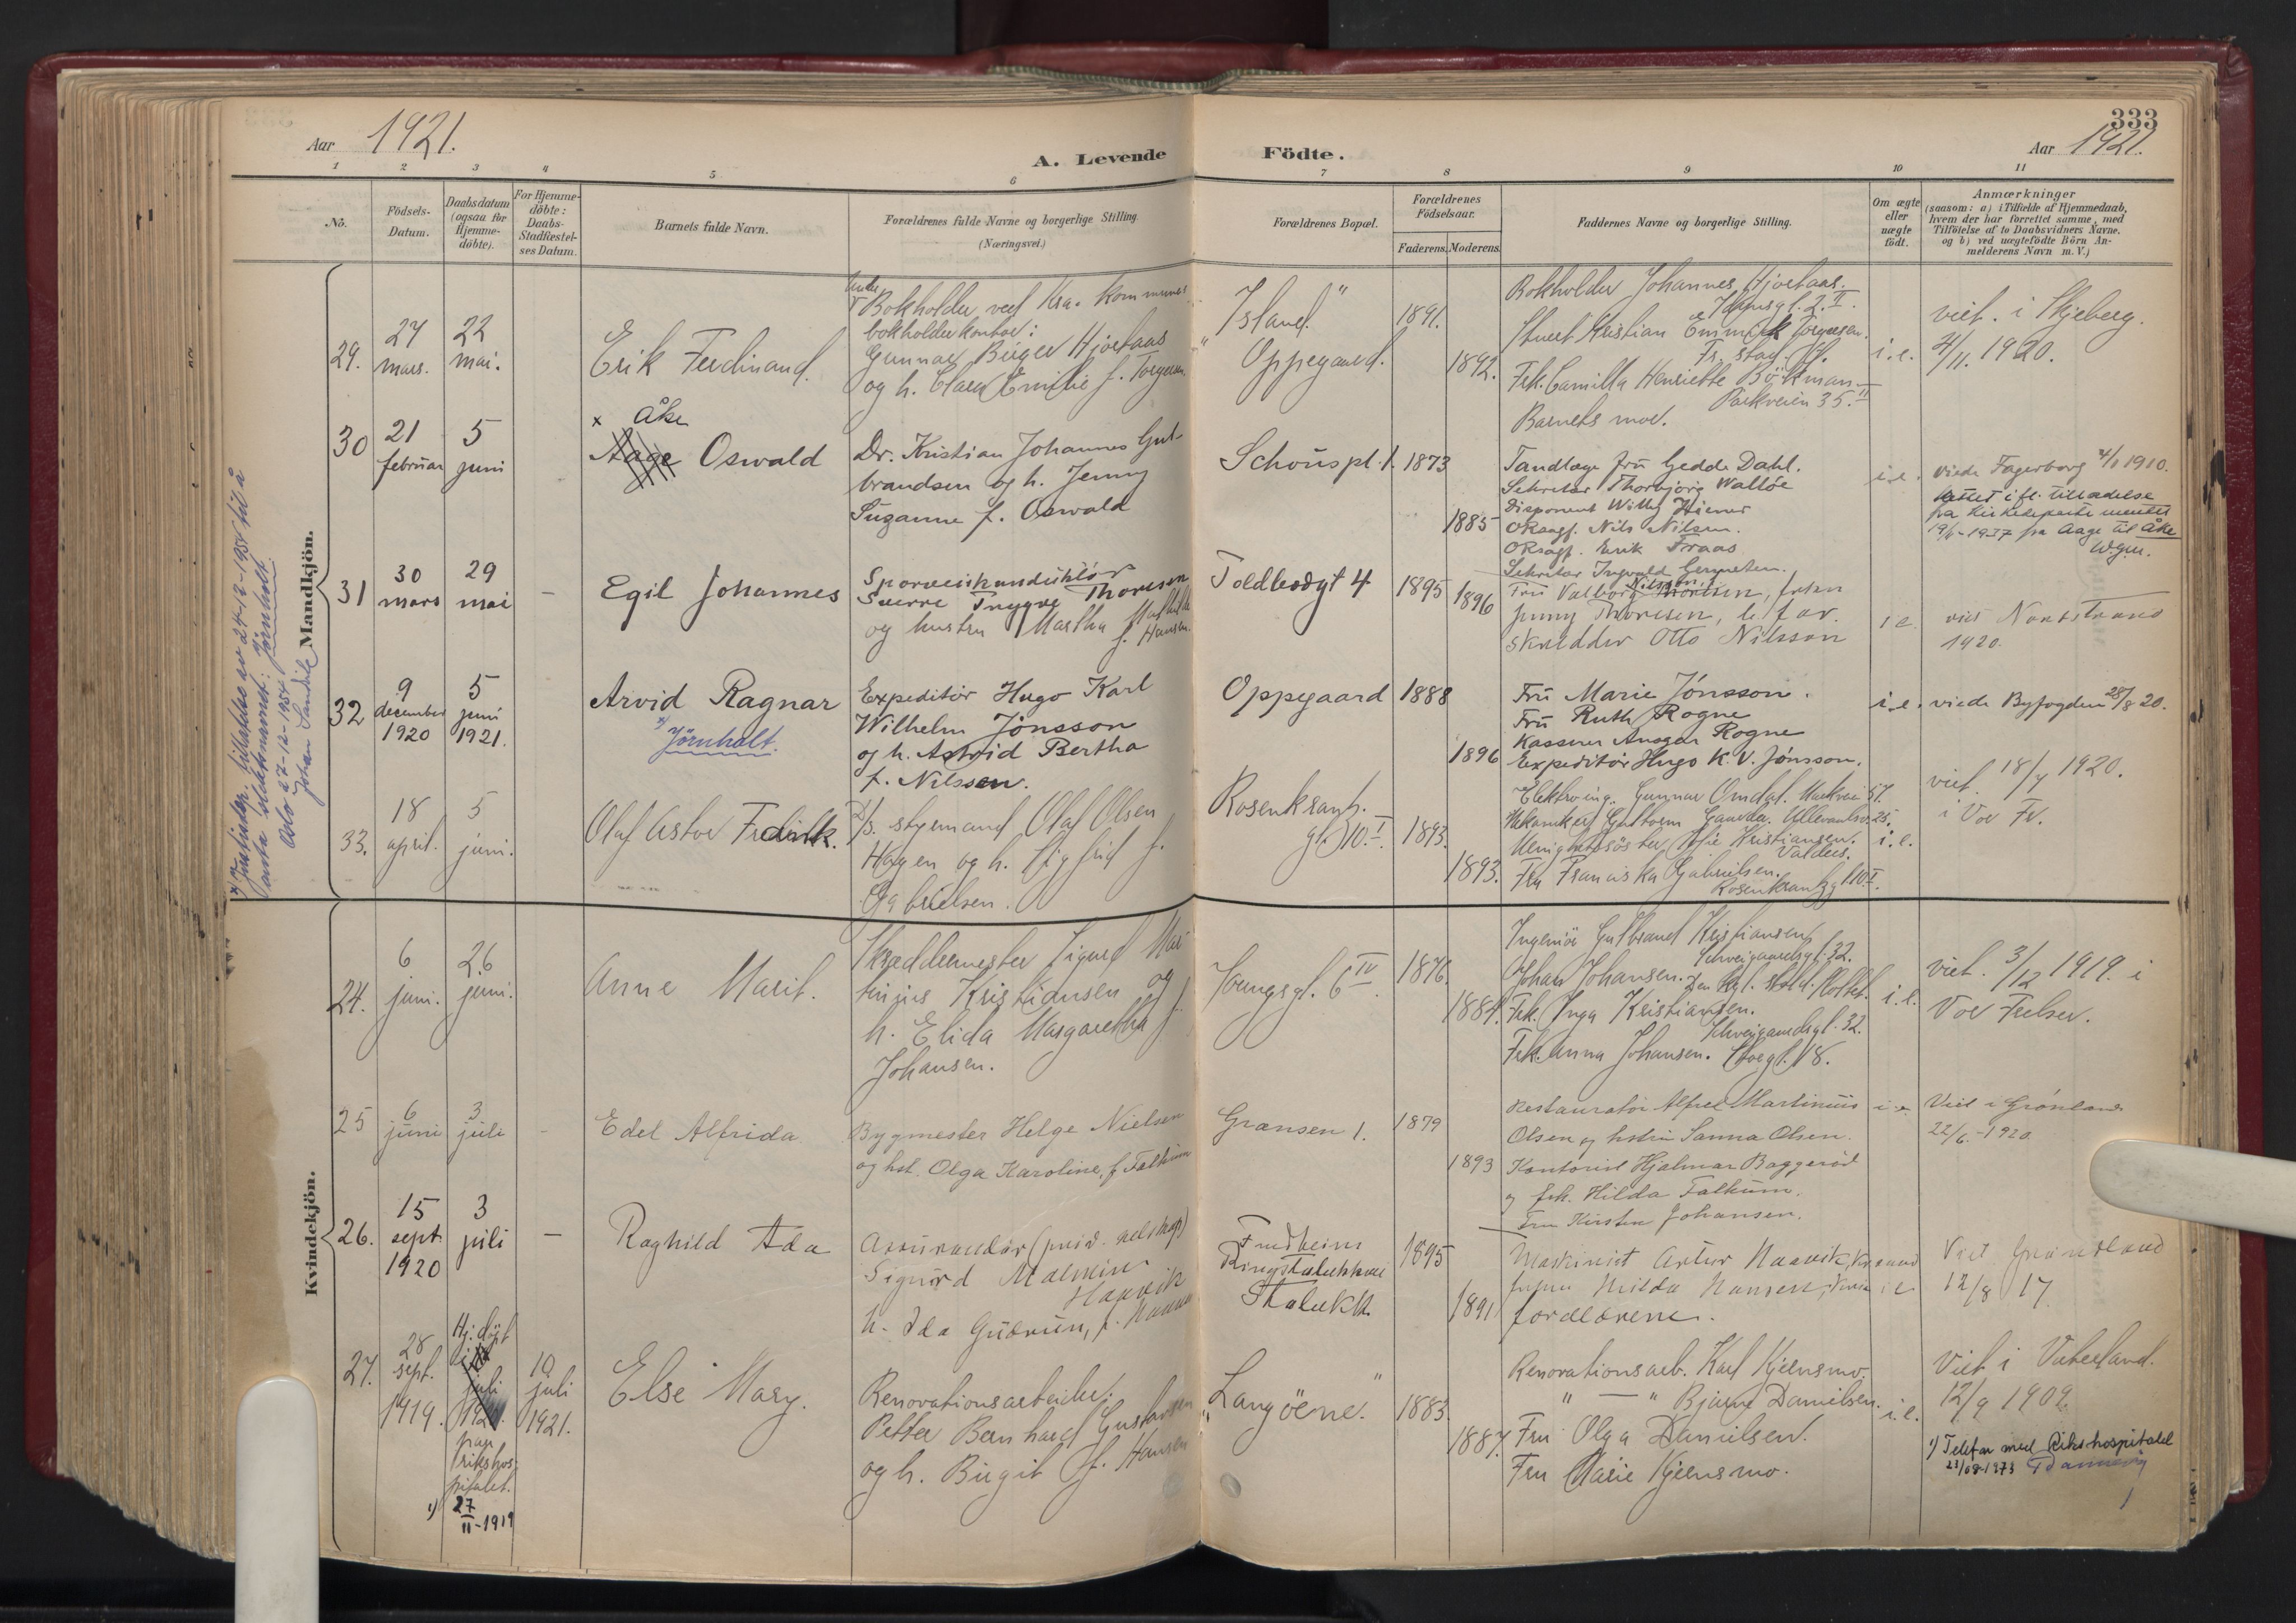 333
Aar 1921.
A. Levende Födte.
Aar 1921.
1 2 3 4 5 6 7 8 9 10 11
No.
Födsels-
Datum.
Daabsdatum
(ogsaa for
Hjemme-
döbte).
For Hjemme-
döbte:
Daabs-
Stadfæstel-
ses Datum.
Barnets fulde Navn.
Forældrenes fulde Navne og borgerlige Stilling.
(Næringsvei.)
Forældrenes Bopæl.
Forældrenes
Födselsaar.
Faderens. Moderens.
Faddernes Navne og borgerlige Stilling.
Om ægte
eller
uægte
födt.
Anmærkninger
(saasom: a) i Tilfælde af Hjemmedaab,
hvem der har forrettet samme, med
Tilföielse af to Daabsvidners Navne.
og b) ved uægtefödte Börn An-
melderens Navn m. V.)
Mandkjön.
29.
27
mars.
22
mai.
Erik Ferdinand.
Bokholder ved Kra. kommunes
bokholderkontor:
Gunnar Birger Hjortaas
og h. Clara Emilie f. Torgersen
"Island"
Oppegaard.
1891.
1892.
Bokholder Johannes Hjortaas.
2. II.
Stuert Kristian Torgersen.
Frk. Camilla Henriette Bökman
Parkveien 35. II
Barnets mor.
i.e.
viet. i Skjeberg.
4/11. 1920.
30
21
februar
5
juni
x Åke
Aage Oswald
Dr. Kristian Johannes Gul-
brandsen og h. Jenny
Suzanne f. Oswald
Schouspl. 1.
1873
1885
Tandlæge fru Gedde Dahl.
Sekretær Thorbjörg Waltöe
Disponent Willy
ORsagf. Nils Nilsen.
ORsagf. Erik Fraas
Sekretær Ingvald
i.e.
viede Fagerborg 4/1 1910.
rettet ifl. tilladelse
fra Kirkedepartementet
19/6-1937 fra Aage til Åke
31
30
mars
29
mai
–
Egil Johannes
Sporveiskonduktör
Sverre Trygve Thoresen
og hustru Martha Mathilde
f. Hansen.
Toldbodgt 4
1895
1896
Fru Valborg Nilsson, Thoresen, frken
Jenny Thoresen, b. far.
skredder Otto Nilsson
i e.
viet Nordstrand
1920.
32
9
december
1920
5
juni
1921.
Arvid Ragnar
x) Jörnholt.
Expeditör Hugo Karl
Wilhelm Jönsson
og h. Astrid Bertha
f. Nilssen.
Oppegaard
1888
1896
Fru Marie Jónsson.
Fru Ruth Rogne
Kasserer Ansgar Rogne
Expeditör Hugo K. V. Jónsson.
i.e.
viede Byfogden 28/8 20.
33.
18
april.
5
juni.
Olaf Astor Fredrik.
D/s. styrmand Olaf Olsen
Hagen og h. Sigfrid f.
Gabrielsen.
Rosenkrantz.
gt. 10. I.
1893.
1893.
Elektroing. Gunnar Omdal. Markvei 57.
Menighetssöster Kristiansen.
Valders.
Fru Franciska Gabrielsen.
Rosenkrantzg 10 I.
i.e.
viet. 18/7 1920.
i Vor Fr.
x) Justisdep. tillatelse av 24-12-1954 til å
anta slektsnavnet: Jörnholt
Oslo 27-12-1954.
Kvindekjön.
24.
6
juni.
26
juni.
Anne Marit.
Skræddermester Sigurd Mar-
tinius Kristiansen og
h. Elida Margaretha f.
Johansen.
Youngsgt. 6 IV.
1876.
1884.
Ingeniör Gulbrand Kristiansen
Schweigaardsgt. 32.
Johan Johansen.
Frk. Inga Kristiansen.
Schweigaardsgt. 32.
Frk. Anna Johansen.
i.e.
viet. 3/12 1919. i
Vor Frelser.
25
6
juni
3
juli
–
Edel Alfrida
Bygmester Helge Nielsen
og hst. Olga Karoline, f. Falkum
Grænsen 1.
1879
1893
Restauratör Alfred Martinius
Olsen og hstru Sanna Olsen.
Kontorist Hjalmar Baggeröd
og frk. Hilda Falkum.
Fru Kirsten Johansen.
i e.
Viet i Grönland
22/6-1920
26.
15
sept.
1920
3
juli
–
Raghild Ada
Assurandör (priv. selskap)
Sigurd Malmin
Haavik
h. Ida Gudrun, f.
Fredheim
Stabekk
1895
1891
Maskinist Artur Haavik,
Hilda Hansen,
forældrene.
i e
Viet Grönland
12/8 17
27.
28
sept.
1919.
Hj: döpt
juli
1921.
paa
rikshos-
pitalet.
1) 27/11-1919
10
juli
1921.
Else Mary.
Renovationsarbeider.
Petter Bernhard Gustavsen
og h. Birgit f. Hansen
"Langöene."
1883.
1887.
Renovationsarb. Karl Kjernsmo.
" — " Bjarne Danielsen.
Fru Olga Danielsen.
Fru Marie Kjernsmo.
i.e.
Viet i Vaterland.
12/9 1909.
1) Telefon med Rikshospitalet
21/08-1973